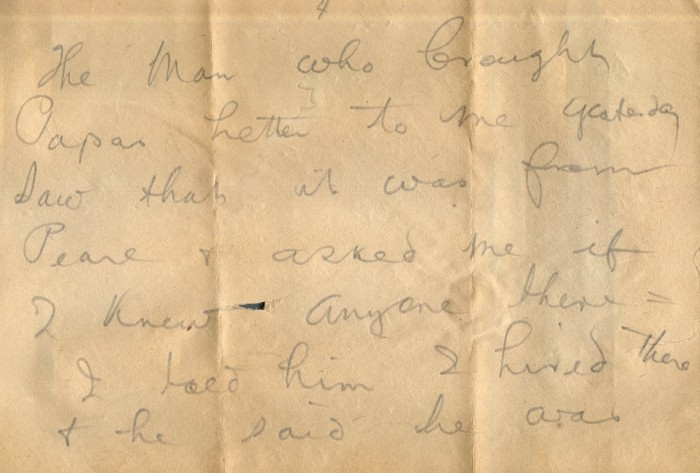 4
The Man who brought
Papas Letter to me yesterday
Saw that it was from
& asked me if
I knew anyone there =
I told him I lived there
& he said he was